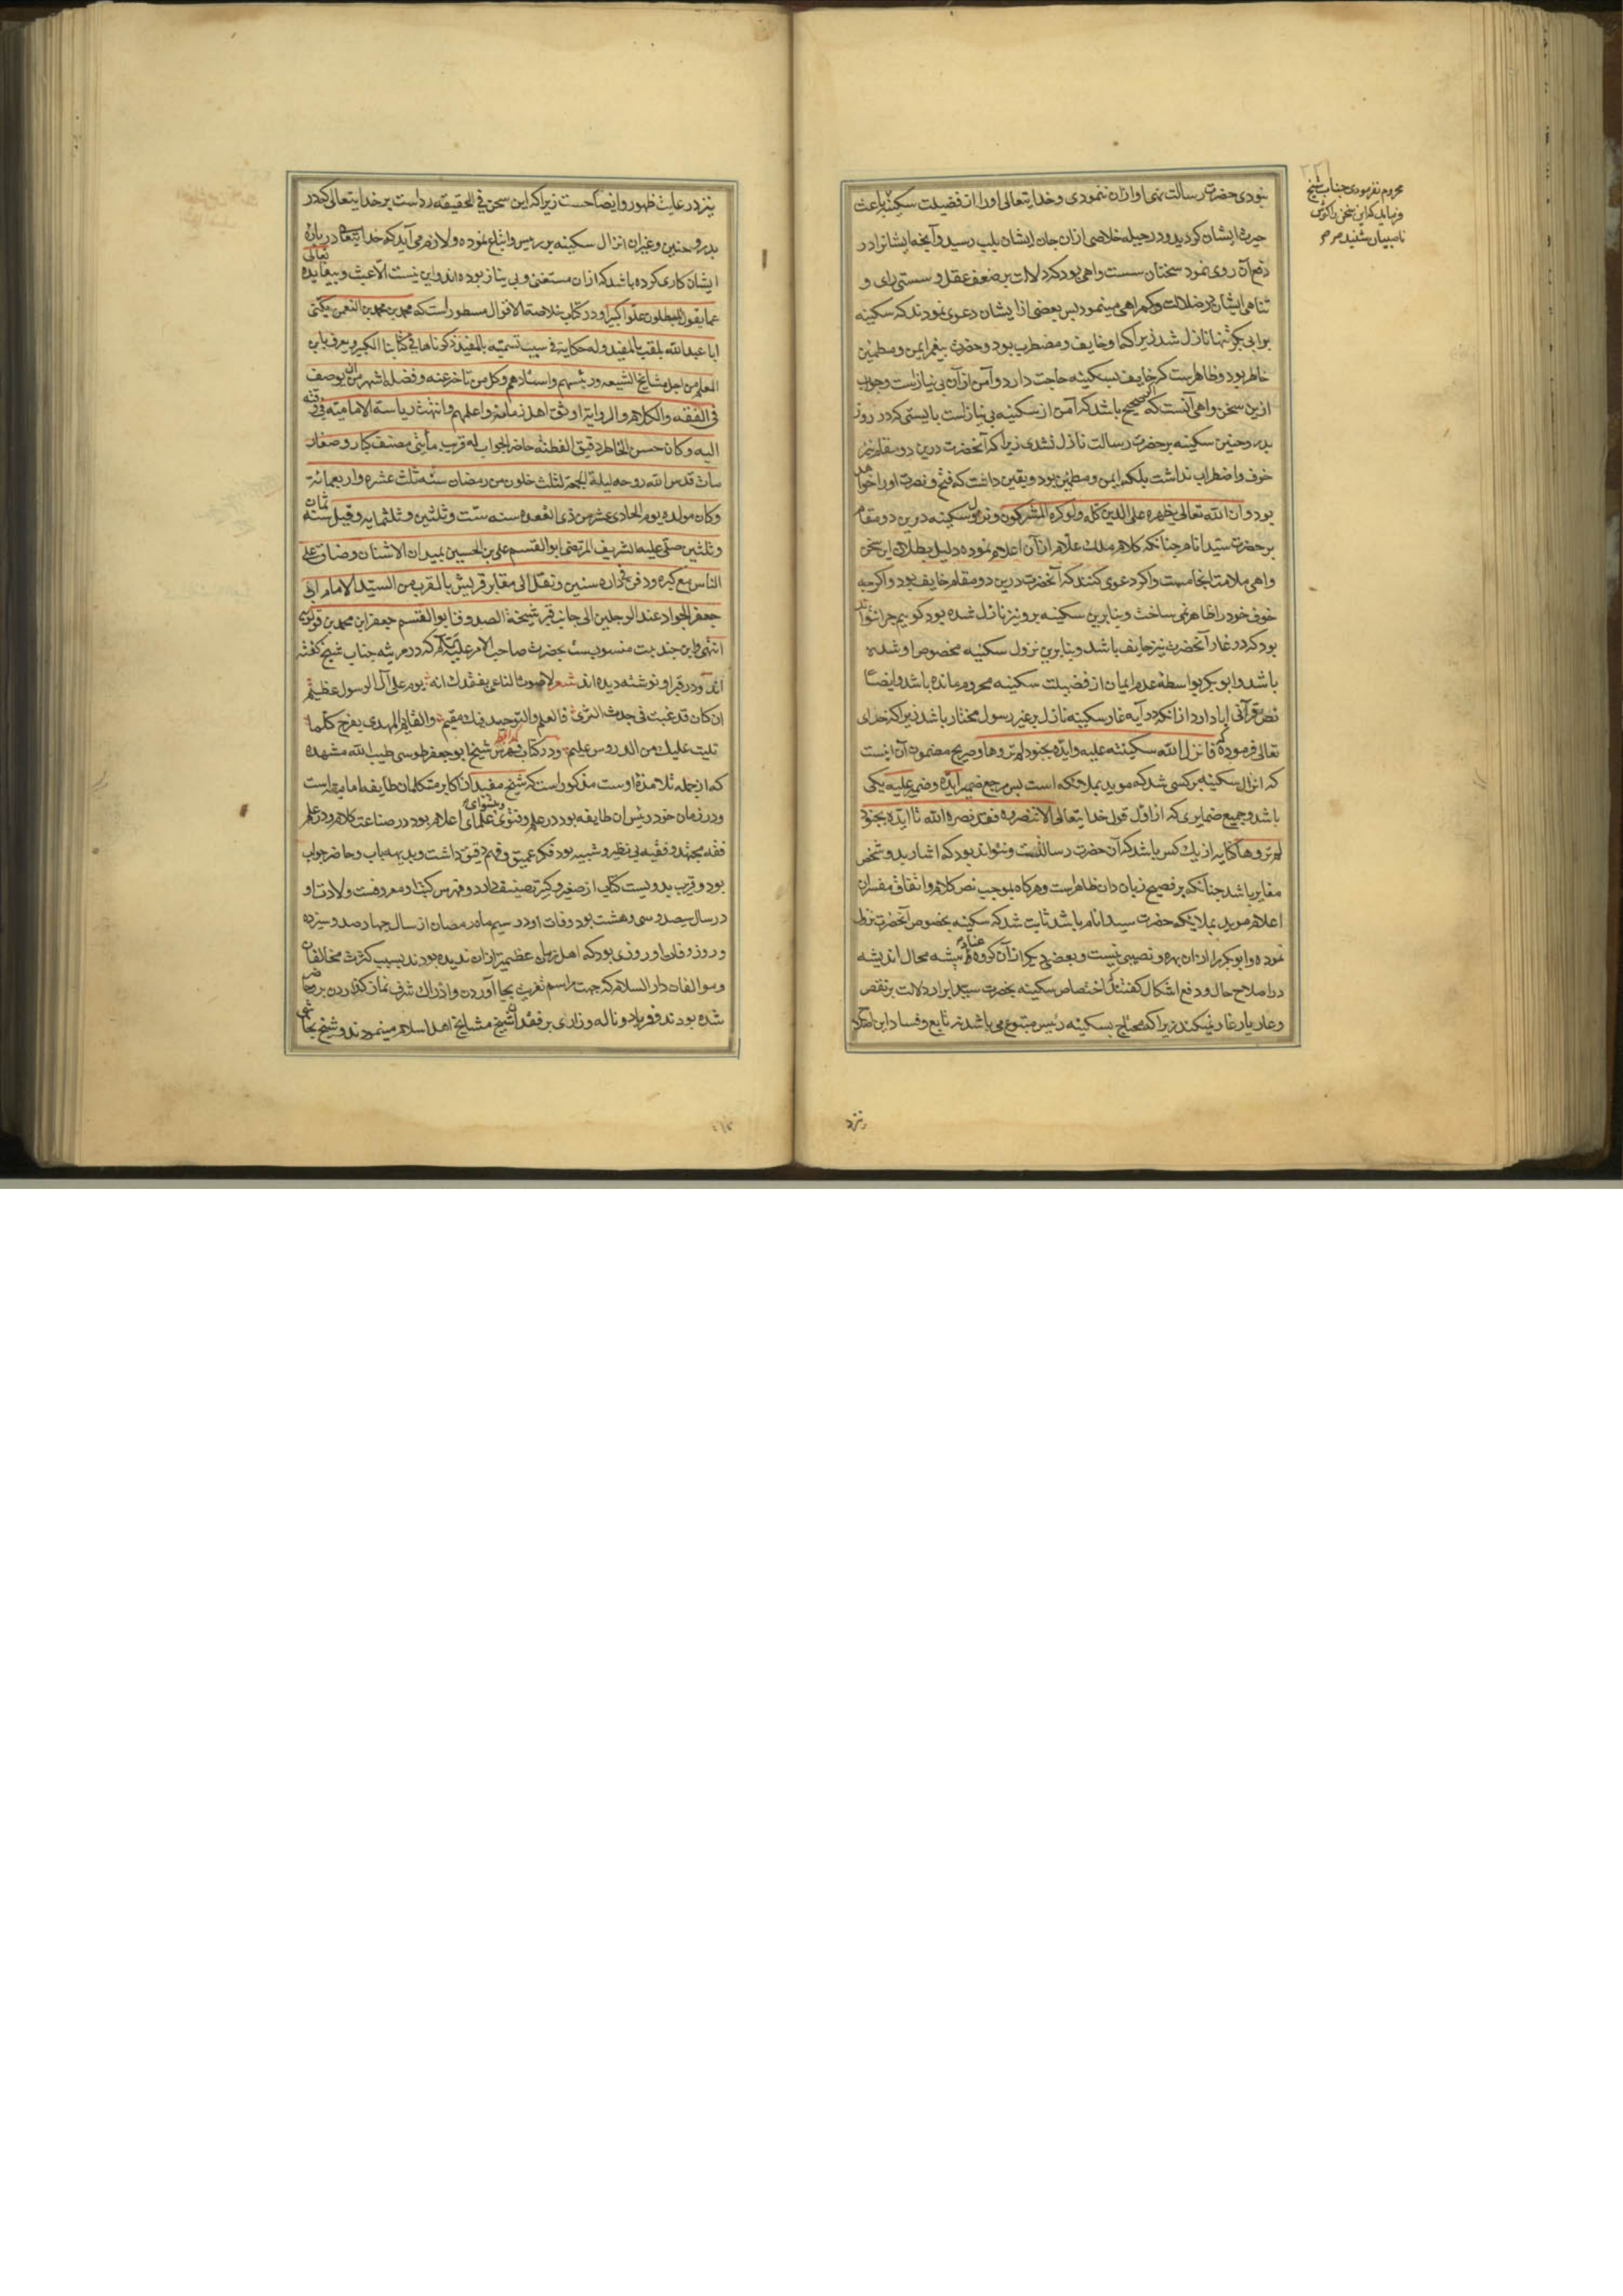 نبودی حضرت رسالت نهی او ازان ننمودی و خدایتعالی او را از فضیلت سکینه باعث
محروم نفرمودی جناب شیخ
فرماید که این سخن را گوش
ناصبیان شنید مرمر
حیرت ایشان گردید و در حیله خلاصی ازان جان ایشان بلب رسید و آنچه ایشانرا در
دفع آن روی نمود سخنان سست واهی بود که دلالت بر ضعف عقل و سستی رای و
تناهی ایشان در ضلالت و گمراهی مینمود پس بعضی از ایشان دعوی نمودند که سکینه
بر ابی بکر تنها نازل شد زیرا که او خایف و مضطرب بود و حضرت پیغمبر ایمن و مطمئن
خاطر بود و ظاهرست که خایف بسکینه حاجت دارد و آمن ازان بی نیازاست و جواب
ازین سخن واهی آنست که اگر صحیح باشد که آمن از سکینه بی نیازاست بایستی که در روز
بدر و حنین سکینه بر حضرت رسالت نازل نشدی زیرا که آنحضرت درین دو مقام نیز
خوف و اضطراب نداشت بلکه ایمن و مطمئن بود و یقین داشت که فتح و نصرت او را خواهد
بود و آن الله تعالی یظهره علی الدین کله و لو کره المشرکون و نزول سکینه درین دو مقام
بر حضرت سید انام چنانکه کلام ملک علام ازان اعلام نموده دلیل بطلان این سخن
واهی ملامت انجامست و اگر دعوی کنند که آنحضرت درین دو مقام خایف بود و اگرچه
خوف خود را ظاهر نمی ساخت و بنابرین سکینه برو نیز نازل شده بود گوییم چرا نتواند
بود که در غار آنحضرت نیز خایف باشد و بنابرین نزول سکینه مخصوص او شده
باشد و ابو بکر بواسطه عدم ایمان از فضیلت سکینه محروم مانده باشد و ایضا
نص قرآنی ابا دارد از انکه در آیه غار سکینه نازل بر غیر رسول مختار باشد زیرا که خدای
تعالی فرموده که فانزل الله سکینته علیه و ایده بجنود لم تروها و صریح مضمون آن اینست
که انزال سکینه بر کسی شد که موید بملائکه است پس مرجع ضمیر ایده و ضمیر علیه یکی
باشد و جمیع ضمایری که از اول قول خدایتعالی الا تنصروه فقد نصره الله تا ایده بجنود
لم تروها کنایه از یک کس باشد که آن حضرت رسالتست و نتواند بود که اشاره بدو شخص
مغایر باشد چنانکه بر فصیح زبان دان ظاهراست و هرکاه بموجب نص کلام و اتفاق مفسران
اعلام موید بملائکه حضرت سید انام باشد ثابت شد که سکینه بخصوص آنحضرت نزول
نموده و ابو بکر را ازان بهره و نصیبی نیست و بعضی دیگر ازان گروه عناد پیشه محال اندیشه
در اصلاح حال و دفع اشکال گفته‌اند که اختصاص سکینه بحضرت سید ابرار دلالت بر نقص
و عار یار غار نمیکند زیرا که محتاج بسکینه رئیس متبوع می باشد نه تابع و فساد این
نزد
نیز در غایت ظهور و ایضاحست زیرا که این سخن فی الحقیقه رداست بر خدایتعالی که در
بدر و حنین و غیران انزال سکینه بر رئیس و اتباع نموده و لازم می آید که خدایتعالی در باره
ایشان کاری کرده باشد که ازان مستغنی و بی نیاز بوده اند و این نیست الا عبث و بیفایده تعالی
عما یقول المبطلون علوا کبیرا و در کتاب خلاصة الاقوال مسطوراست که محمد بن محمد بن النعمن یکنی
ابا عبد الله یلقب بالمفید و له حکایة فی سبب تسمیته بالمفید ذکرناها فی کتابنا الکبیر و یعرف بابن
المعلم من اجل مشایخ الشیعه و رئیسهم و استادهم و کل من تاخر عنه و فضله اشهر من ان یوصف
فی الفقه و الکلام و الروایة اوثق اهل زمانه و اعلمهم و انتهت ریاسة الامامیه فی وقته
الیه و کان حسن الخاطر دقیق الفطنة حاضر الجواب له قریب مأتی مصنف کبار و صغار
مات قدس الله روحه لیلة الجمعة لثلث خلون من رمضان سنه ثلث عشره و اربعمائة
و کان مولده یوم الحادی عشر من ذی القعده سنه ست و ثلثین و ثلثمایه و قیل سنه ثمان
و ثلثین صلی علیه الشریف المرتضی ابو القسم علی بن الحسین بمیدان الاشنان و ضاق علی
الناس مع کبره و دفن فی داره سنین و نقل الی مقابر قریش بالقرب من السید الامام ابی
جعفر الجواد عند الرجلین الی جانب قبر شیخه الصدوق ابو القسم جعفر ابن محمد بن قولویه
انتهی و این چند بیت منسوبست بحضرت صاحب الامر علیه السلام که در مرثیه جناب شیخ گفته
اند و در قبر او نوشته دیده اند شعر لا صوت الناعی بفقدک انه یوم علی آل الرسول عظیم
ان کان قد غیبت فی جدث الثری فالعلم و التوحید فیک مقیم و القایم المهدی یفرح کلما
تلیت علیک من الدروس علیم و در کتاب فهرس شیخ ابو جعفر طوسی طیب الله مشهده
که از جمله تلامذه اوست مذکوراست که شیخ مفید از اکابر متکلمان طایفه امامیه است
و در زمان خود رئیس ان طایفه بود در علم و فتوی و پیشوای علمای اعلام بود در صناعت کلام و در علم
فقه مجتهد و فقیه بی نظیر و شبیه بود فکر عمیق و فهم دقیق داشت و بدیهه یاب و حاضر جواب
بود و قریب بدویست کتاب از صغیر و کبیر تصنیف دارد و فهرس کتب او معروفست ولادت او
در سال سیصد و سی و هشت بود و فات او در سیم ماه رمضان از سال چهار صد و سیزده
و روز وفات او روزی بود که اهل زمان عظیمتر ازان ندیده بودند بسبب کثرت مخالفان
و موالفان دار السلام که جهت مراسم تعزیت بجا آوردن و ادراک شرف نماز گذاردن برو حاضر
شده بودند و فریاد و ناله و زاری بر فقدان شیخ مشایخ اهل اسلام مینمودند و شیخ نجاشی